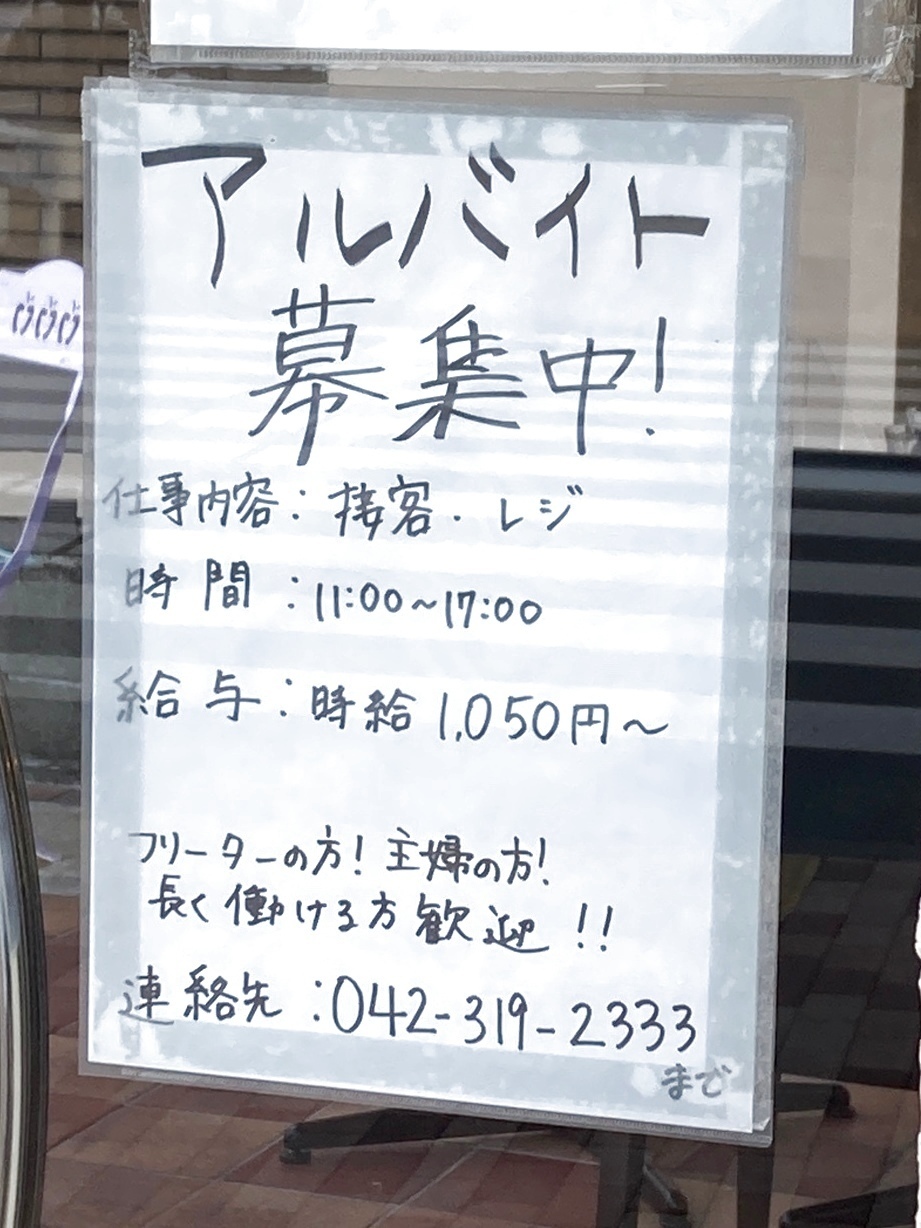 アルバイト
募集中!
仕事内容：接客・レジ
時間：11:00~17:00
給与：時給1,050円~
フリーターの方! 主婦の方!
長く働ける方歓迎!!
連絡先：042-319-2333
まで